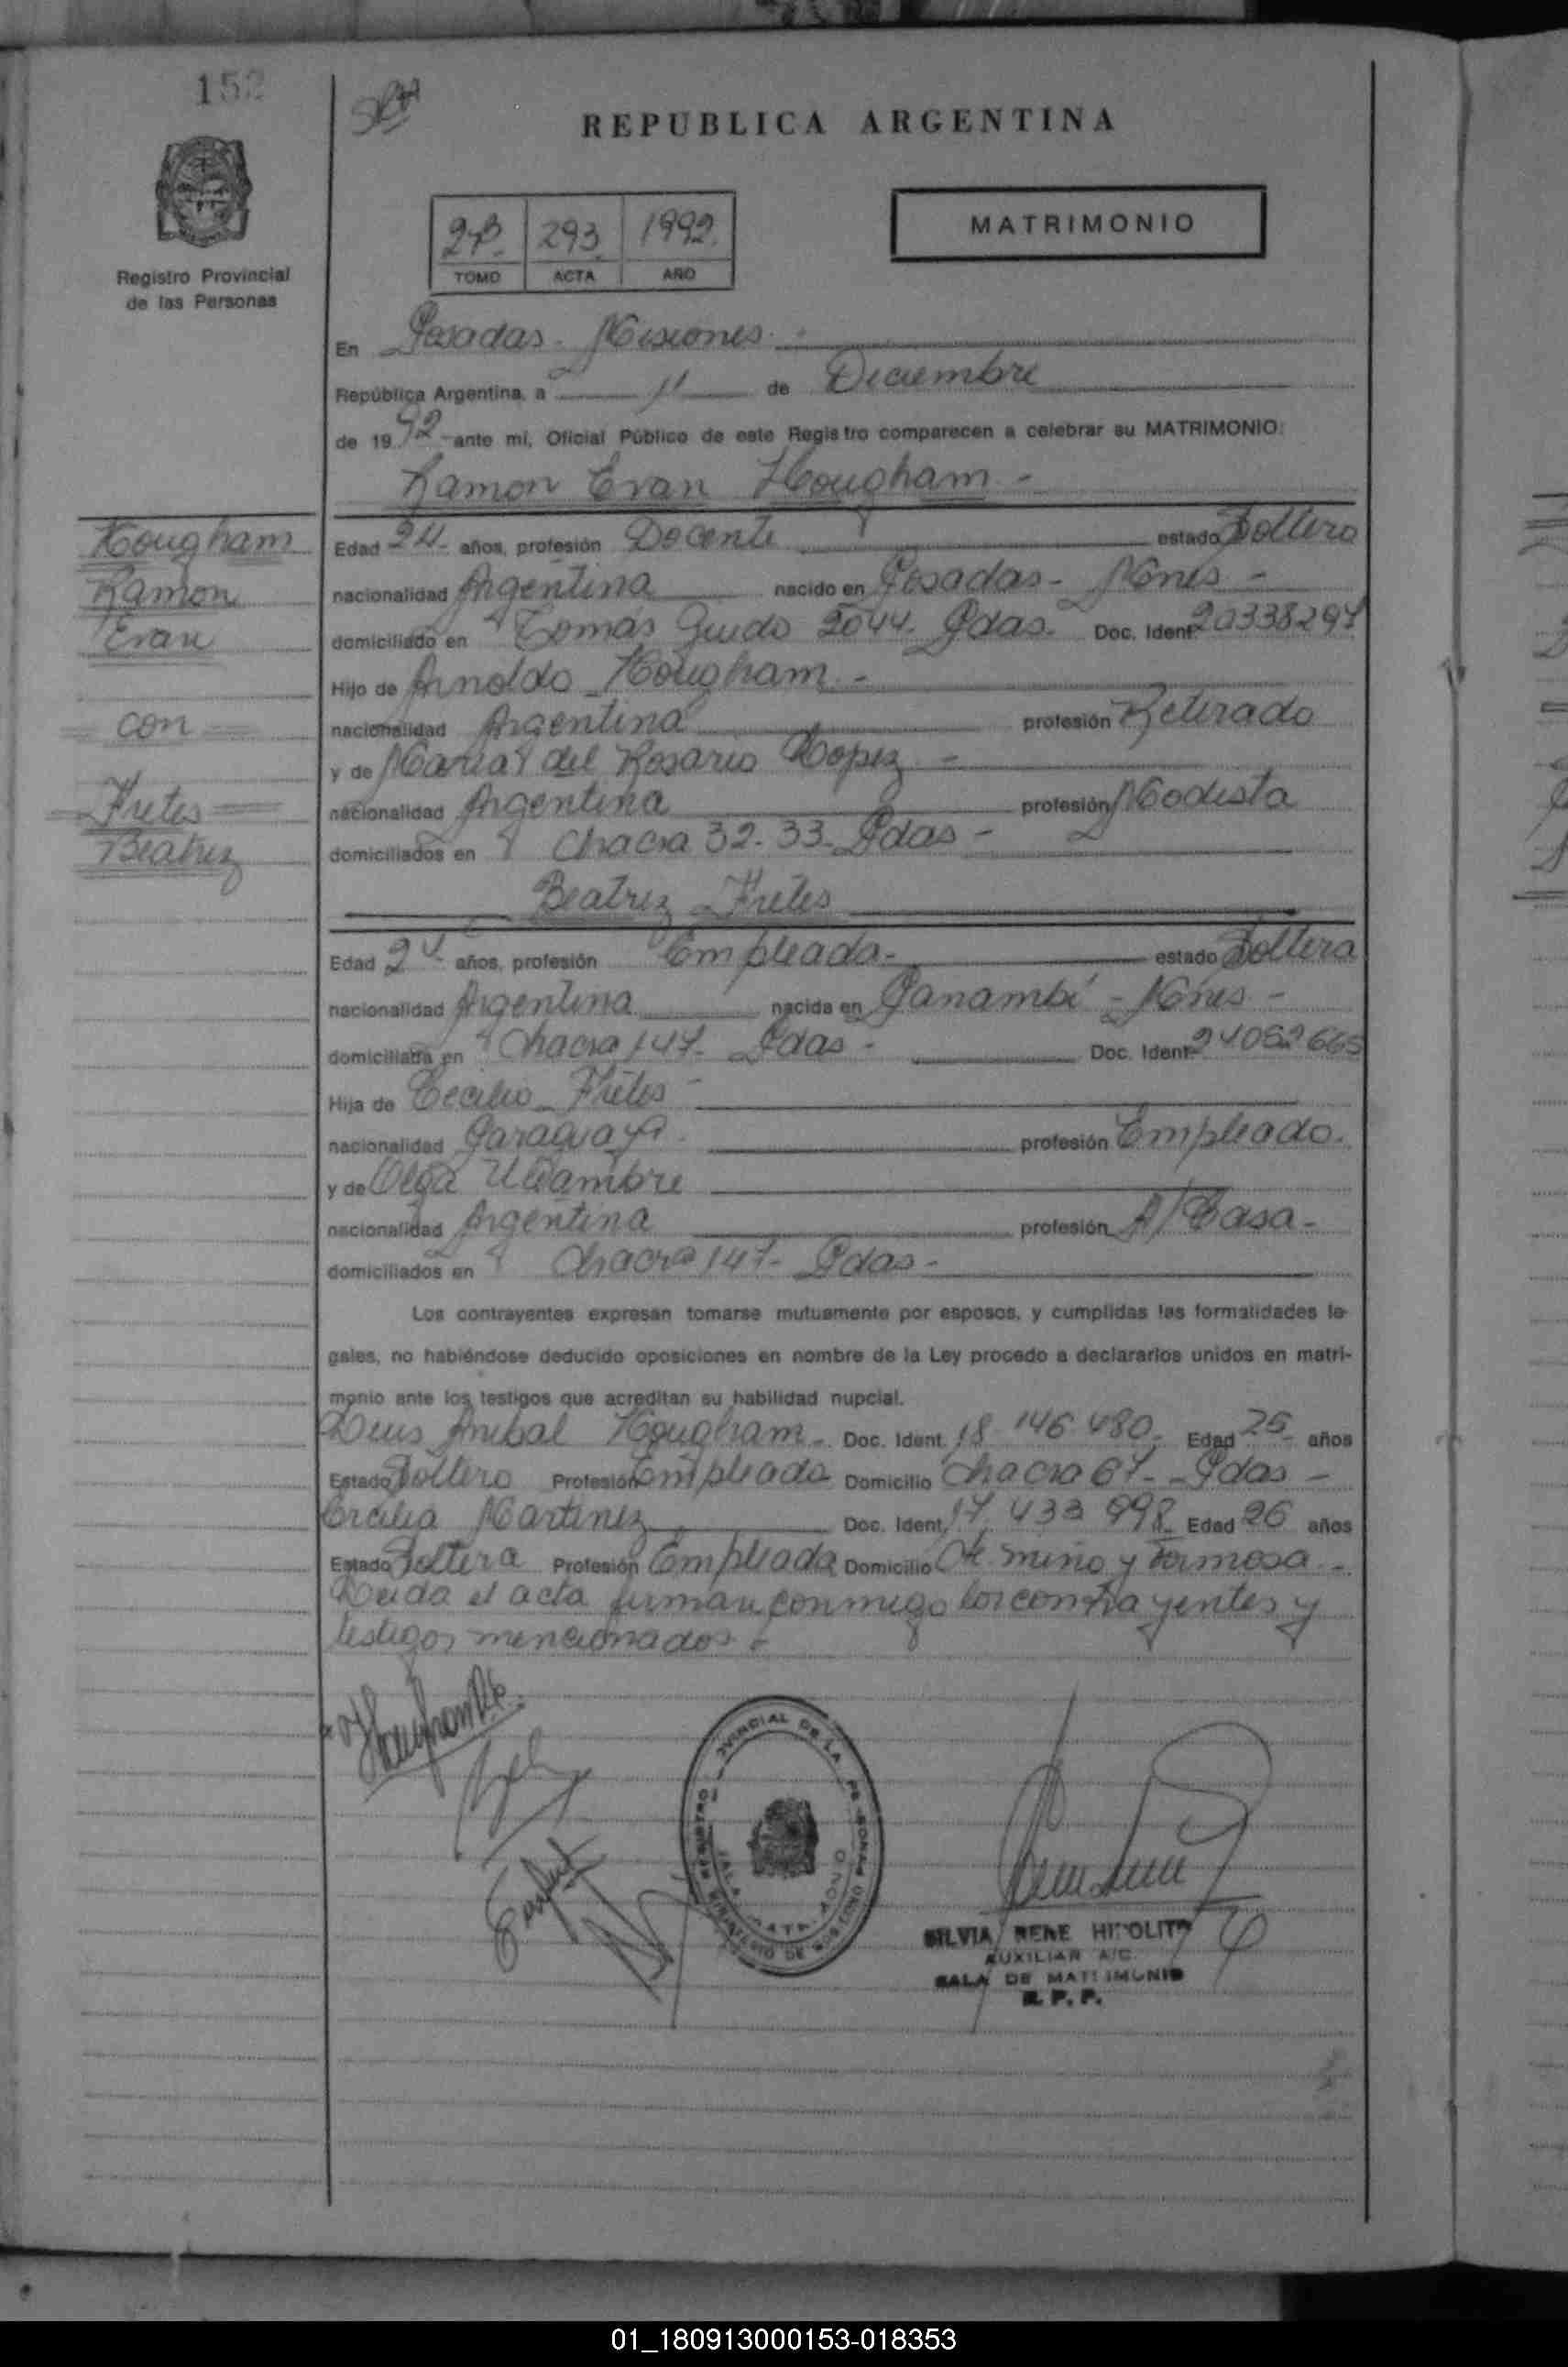 152
REPUBLICA ARGENTINA
Registro Provincial
de las Personas
2ºB 293 1992
TOMO ACTA AÑO
MATRIMONIO
En Posadas - Misiones -
República Argentina, a 11 de Diciembre
de 1992 ante mí, Oficial Público de este Registro comparecen a celebrar su MATRIMONIO:
Ramon Evan Hougham -
Hougham
Ramon
Evan
con
Fretes
Beatriz
Edad 24 años, profesión Docente estado Soltero
nacionalidad Argentina nacido en Posadas - Mnes -
domiciliado en Tomás Guido 2044 - Pdas. Doc. Ident. 20338297
Hijo de Arnoldo Hougham -
nacionalidad Argentina profesión Retirado
y de Maria del Rosario Lopez -
nacionalidad Argentina profesión Modista
domiciliados en Chacra 32-33- Pdas -
Beatriz Fretes
Edad 24 años, profesión Empleada - estado Soltera
nacionalidad Argentina nacida en Panambí - Mnes -
domiciliada en Chacra 147- Pdas - Doc. Ident. 24082665
Hija de Cecilio Fretes -
nacionalidad Paraguaya profesión Empleado.
y de Olga
nacionalidad Argentina profesión A/Casa -
domiciliados en Chacra 147- Pdas -
Los contrayentes expresan tomarse mutuamente por esposos, y cumplidas las formalidades le-
gales, no habiéndose deducido oposiciones en nombre de la Ley procedo a declararlos unidos en matri-
monio ante los testigos que acreditan su habilidad nupcial.
Luis Anibal Hougham - Doc. Ident. 18 146 480 - Edad 25 años
Estado Soltero Profesión Empleado Domicilio Chacra 67- Pdas -
Ercilia Martinez Doc. Ident. 17 433 998 Edad 26 años
Estado Soltera Profesión Empleada Domicilio Miño y Formosa -
Leida el acta firman conmigo los contrayentes y
testigos mencionados -
REGISTRO PROVINCIAL DE LAS PERSONAS
SILVIA RENE HIPOLITO
AUXILIAR A/C.
SALA DE MATRIMONIO
R. P. P.
01_180913000153-018353